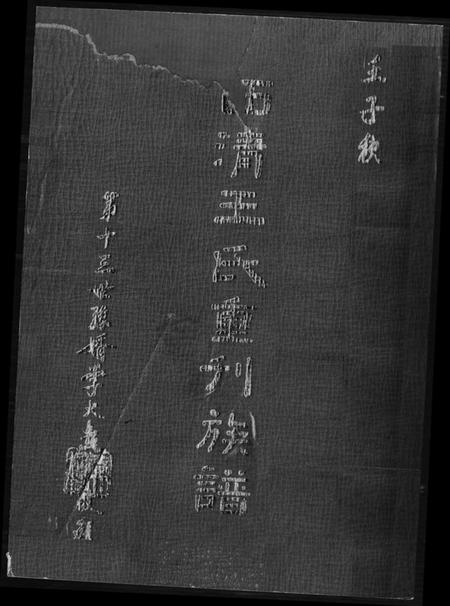 壬子秋
石清王氏重刊族譜
第十三世孫 學大